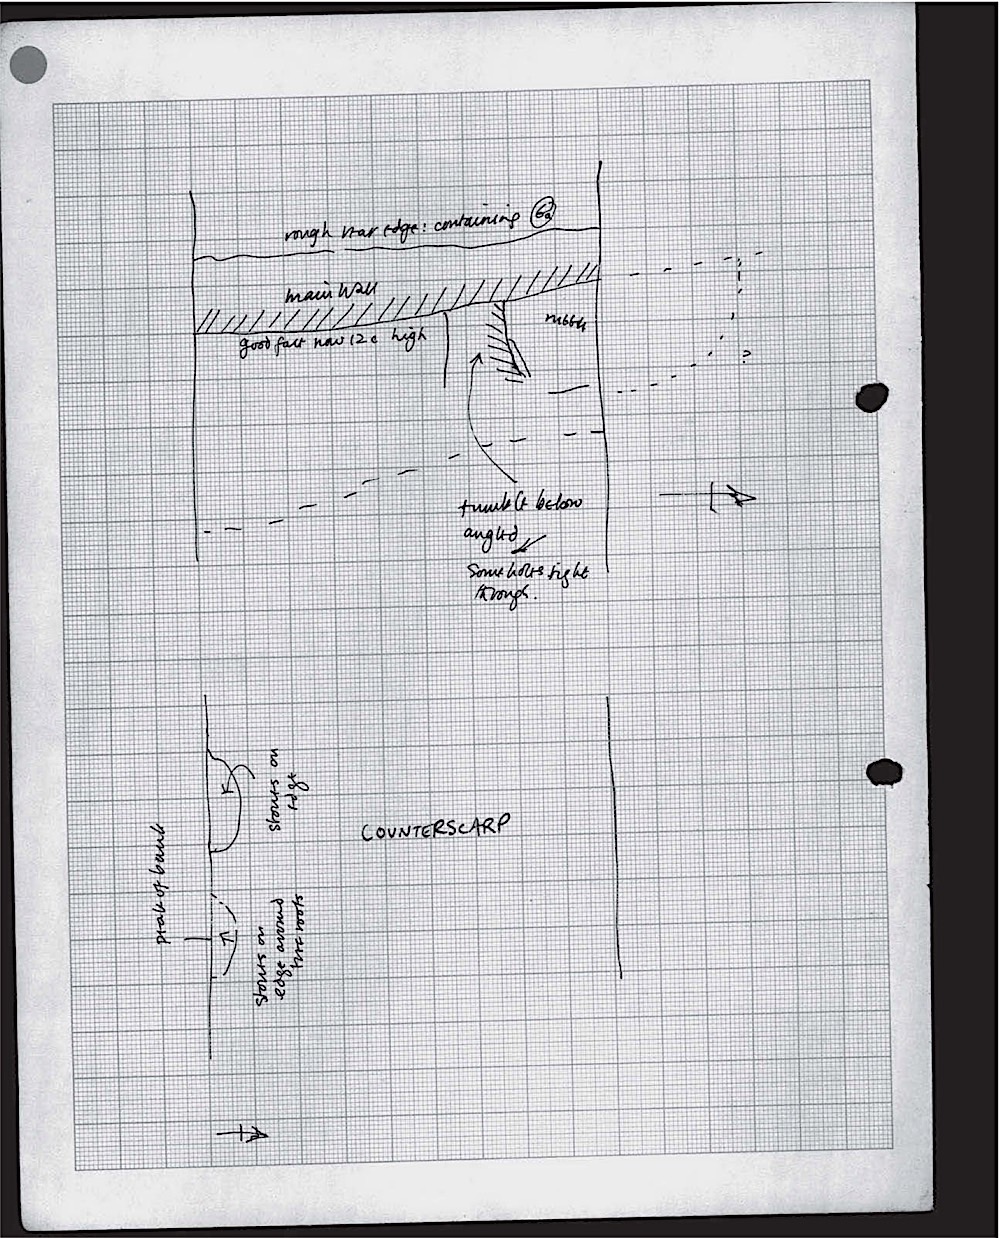 rough rear edge: containing 62
main wall
good fact now 12c high
rubble
?
tumble below
angled
Some holes right
through.
Stones on
edge
COUNTERSCARP
peak of bank
Stones on
edge around
tree roots